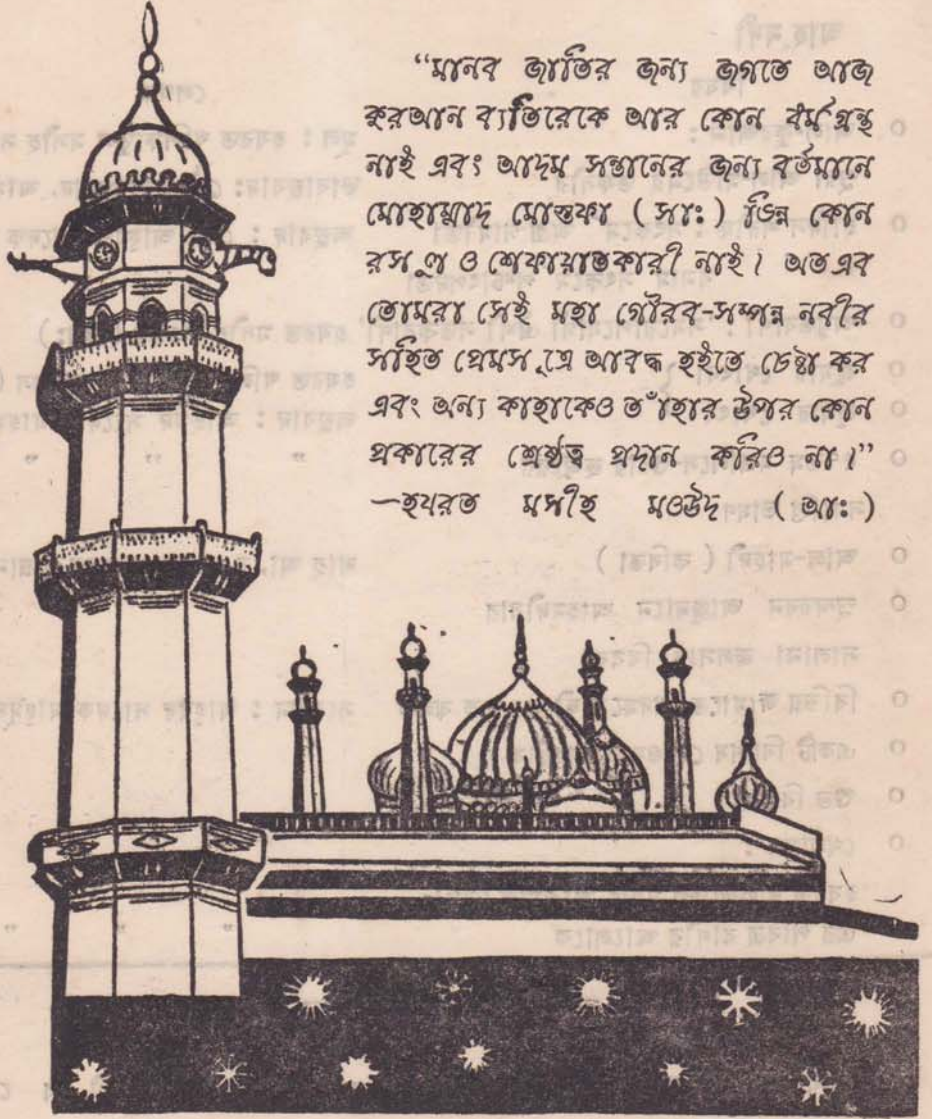 “মানব জাতির জন্য জগতে আজ
কুরআন ব্যতিরেকে আর কোন ধর্মগ্রন্থ
নাই এবং আদম সন্তানের জন্য বর্তমানে
মোহাম্মাদ মোস্তফা ( সাঃ ) ভিন্ন কোন
রসূল ও শেফায়াতকারী নাই। অতএব
তোমরা সেই মহা গৌরব-সম্পন্ন নবীর
সহিত প্রেমসূত্রে আবদ্ধ হইতে চেষ্টা কর
এবং অন্য কাহাকেও তাঁহার উপর কোন
প্রকারের শ্রেষ্ঠত্ব প্রদান করিও না।”
—হযরত মসীহ মওউদ ( আঃ )